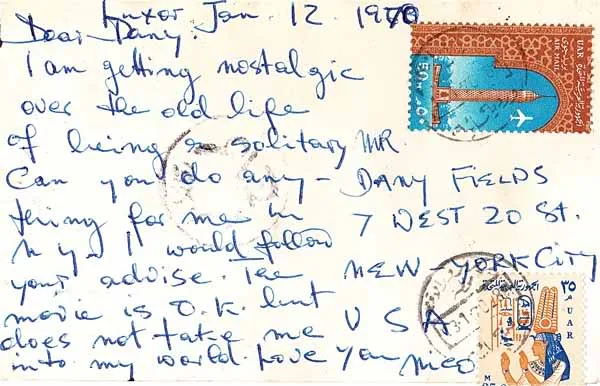 Luxor Jan. 12. 1970
Dear Dany.
I am getting nostalgic
over the old life
of being a solitary
Can you do any-
thing for me in
N Y- I would follow
your advise. The
movie is O.K. but
does not take me
into my world. Love you Nico
MR
DANY FIELDS
7 WEST 20 St.
NEW-YORK CITY
U S A
UAR
AIR MAIL
UAR